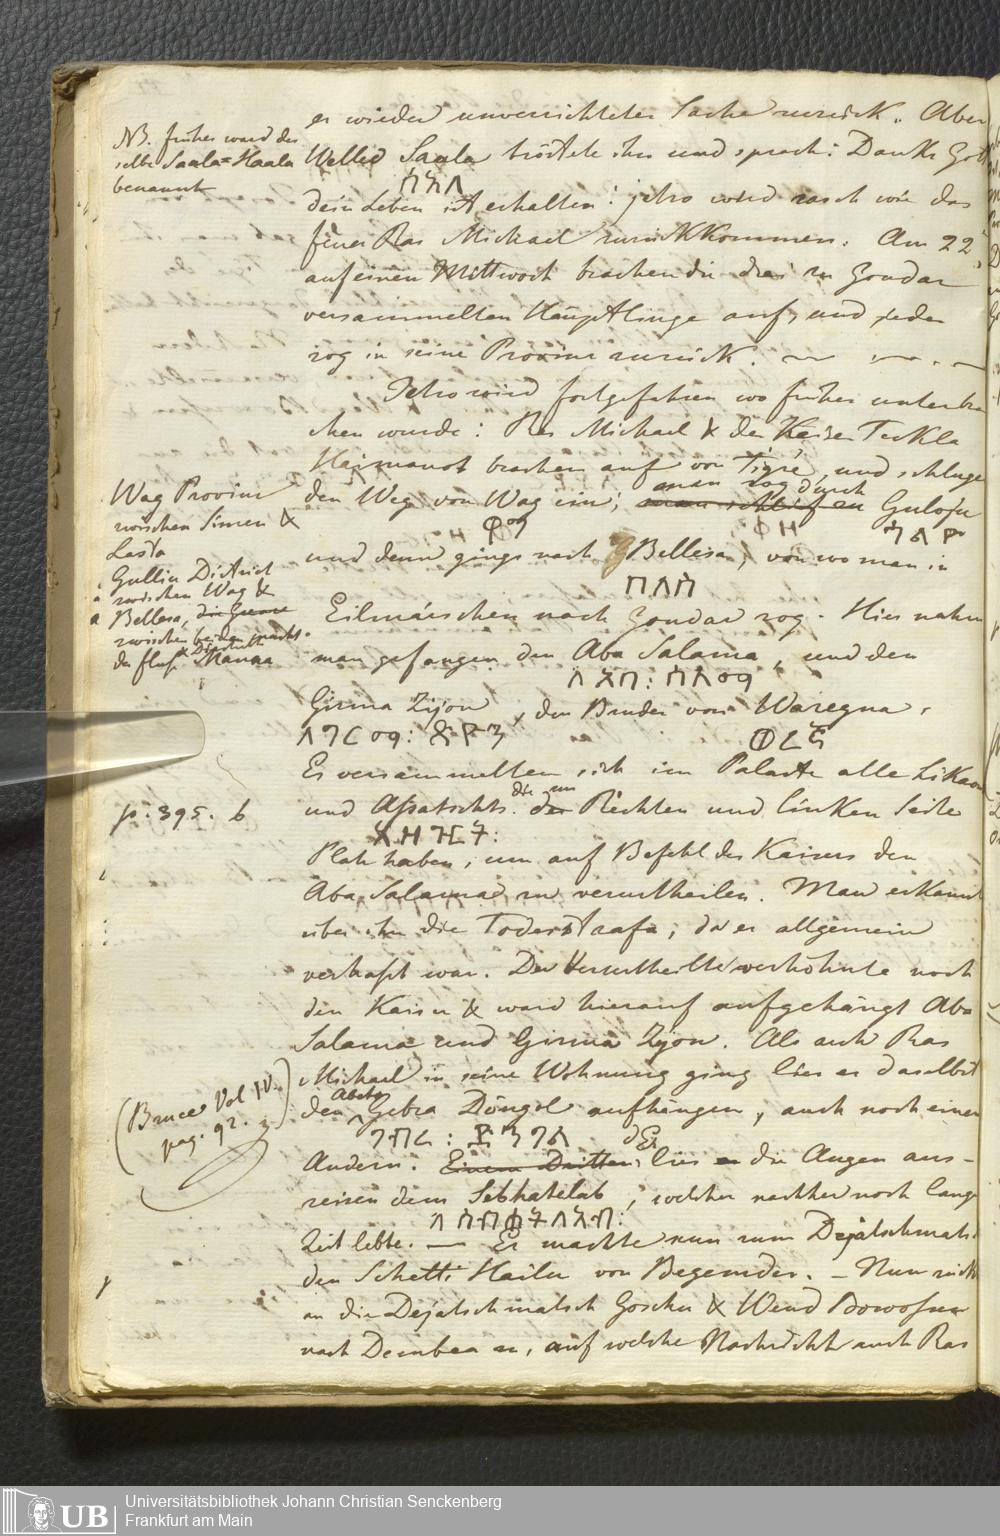 er wieder unverrichteter Sache zurück. Aber
NB. früher ward der
selbe Saala=Haala
benannt
Welled Saala tröstete ihn und sprach: Danke Gott
dein Leben ist erhalten! jetzo wird rasch wie das
feuer Ras Michael zurückkommen. Am 22
auf einen Mittwoch brachen die drei in Gondar
versammelten Häuptlinge auf, und jeder
zog in seine Provinz zurück.
Jetzo wird fortgefahren wo früher unterbro
chen wurde: Ras Michael & der Keiser Tekla
Haimanot brachen auf von Tigré, und schluge
Wag Provinz
zwischen Simen &
Lasta
den Weg von Wag ein; man zog durch
Gullia District
zwischen Wag &
Bellesa, die Grenze
zwischen beiden macht
der fluß
und denn gings nach Bellesa, von wo man in
በለሳ
Eilmärschen nach Gondar zog. Hier nahm
man gefangen den Aba Salama, und den
Girma Zijon, den Bruder von Waregna.
Es versammelten sich im Palaste alle Likaon
p. 395. b
und die zum Rechten und linken Seite
Platz haben, um auf Befehl des Kaisers den
Aba Salama zu verurtheilen. Man erkannt
über ihn die Todesstrafe, da er allgemein
verhaßt war. Der Verurtheilte verhöhnte noch
den Kaiser & ward hierauf aufgehängt Aba
Salama und Girma Zijon. Als auch Ras
Michael in seine Wohnung ging lies er daselbst
(Bruce Vol IV.
pag. 92.
den Abeto Gebra Döngel aufhengen, auch noch einen
Andern. Einem Dritten lies er die Augen aus-
reisen dem Sebhatelab, welcher nachher noch lange
Zeit lebte. — Er machte nun zum Dejatschmatsch
den Schetti Hailu von Begemder. – Nun rück
en die Dejatschmatsch Goschu & Wend Bowosen
nach Dembea an, auf welche Nachricht auch Ras
Universitätsbibliothek Johann Christian Senckenberg
Frankfurt am Main
UB